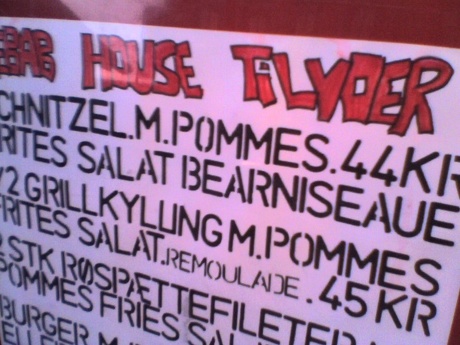 EBAB HOUSE TILVOER
CHNITZEL.M.POMMES.44KR
RITES SALAT BEARNISEAUE
/2 GRILLKYLLING M.POMMES
FRITES SALAT.REMOULADE.45KR
STK.RØSPÆTTEFILETER
POMMES FRIES SAL
BURGER M